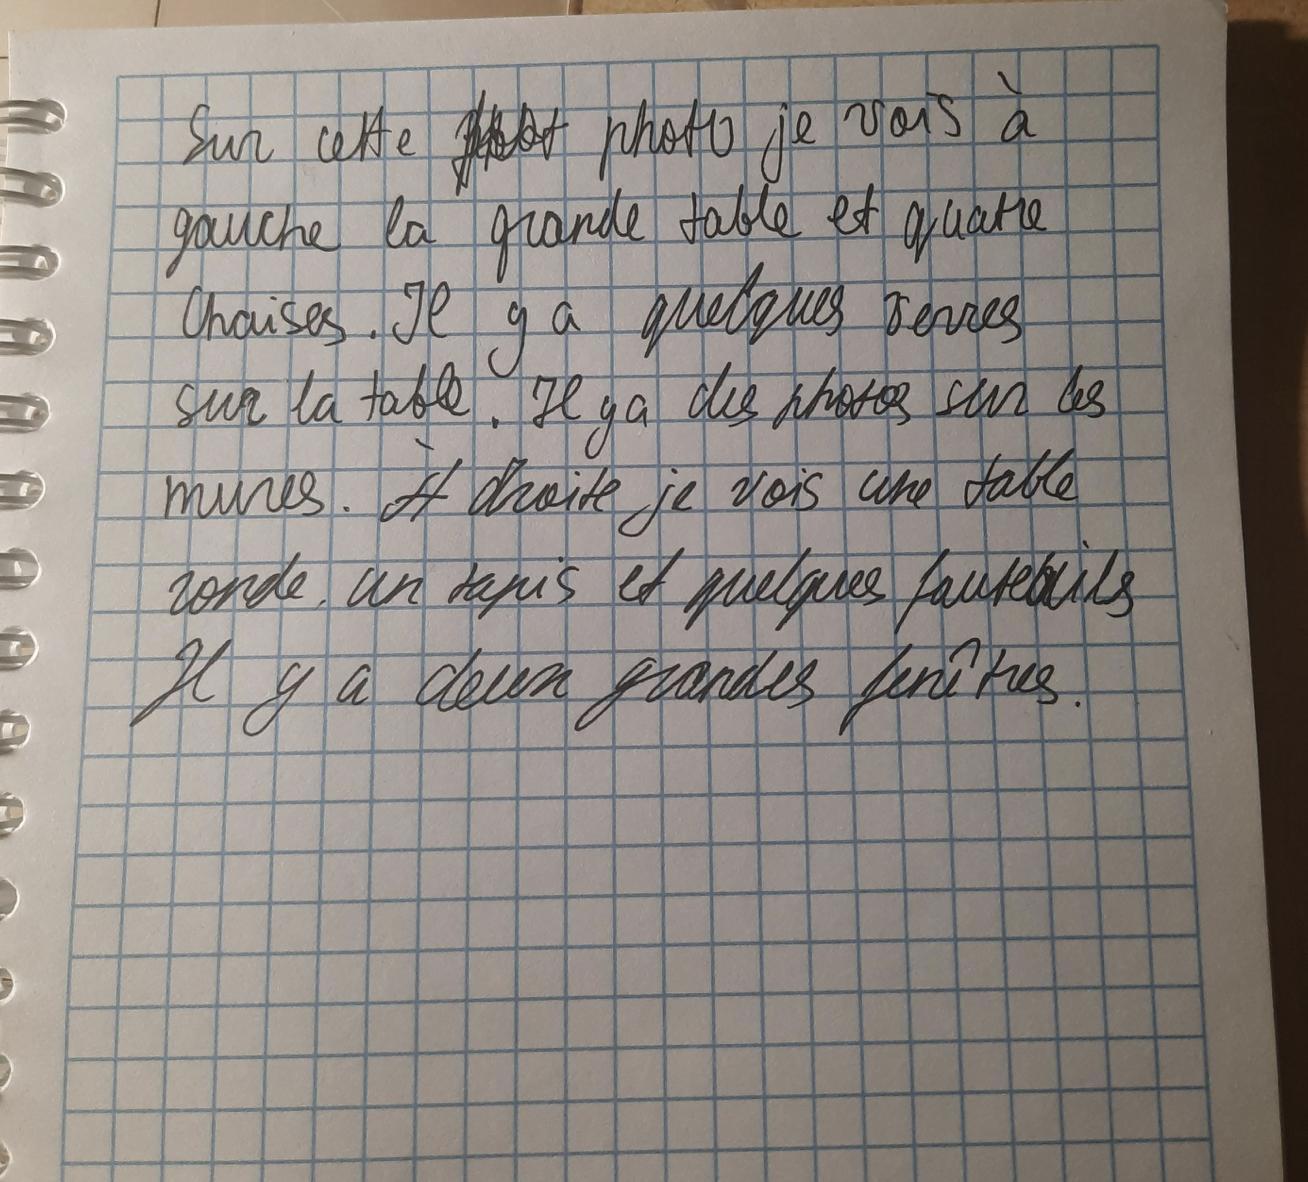 Sur cette photo je vois à
gauche la grande table et quatre
chaises. Il y a quelques verres
sur la table. Il y a des photos sur les
mures. À droite je vois une table
ronde, un tapis et quelques fauteuils
Il y a deux grandes fenîtres.